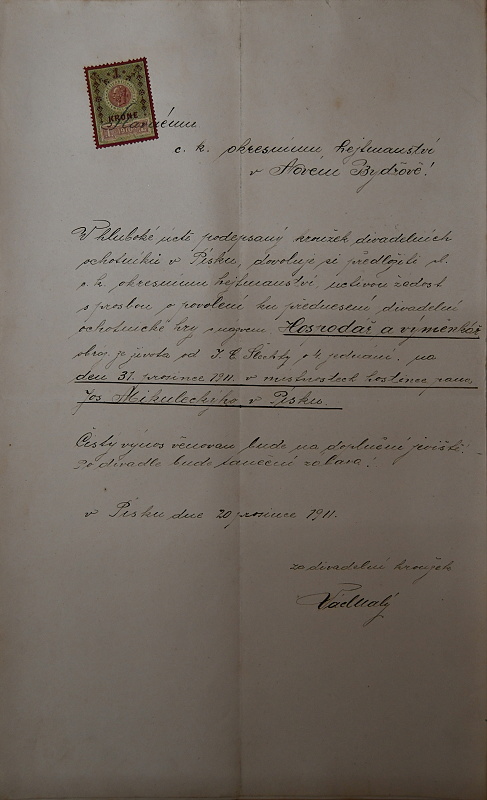 1
KRONE
Slavnému
c. k. okresnímu hejtmanství
v Novém Bydžově!
V hluboké úctě podepsaný kroužek divadelních
ochotníků v Písku, dovoluje si předložiti sl.
c. k. okresnímu hejtmanství, uctivou žádost
s prosbou o povolení ku přednesení divadelní
ochotnické hry s názvem Hospodář a výměnkář
obraz ze života od F. Šlechty o 4 jednání, na
den 31. prosince 1911. v místnostech hostince pana
Jos Mikuleckýho v Písku.
Čistý výnos věnován bude na doplnění jeviště.
Po divadle bude taneční zábava!
v Písku dne 20 prosince 1911.
za divadelní kroužek